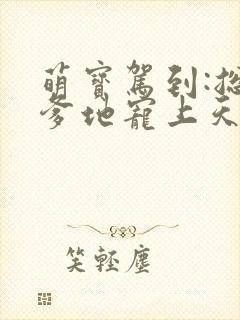 萌寶駕到:總
爹地寵上天
笑輕塵